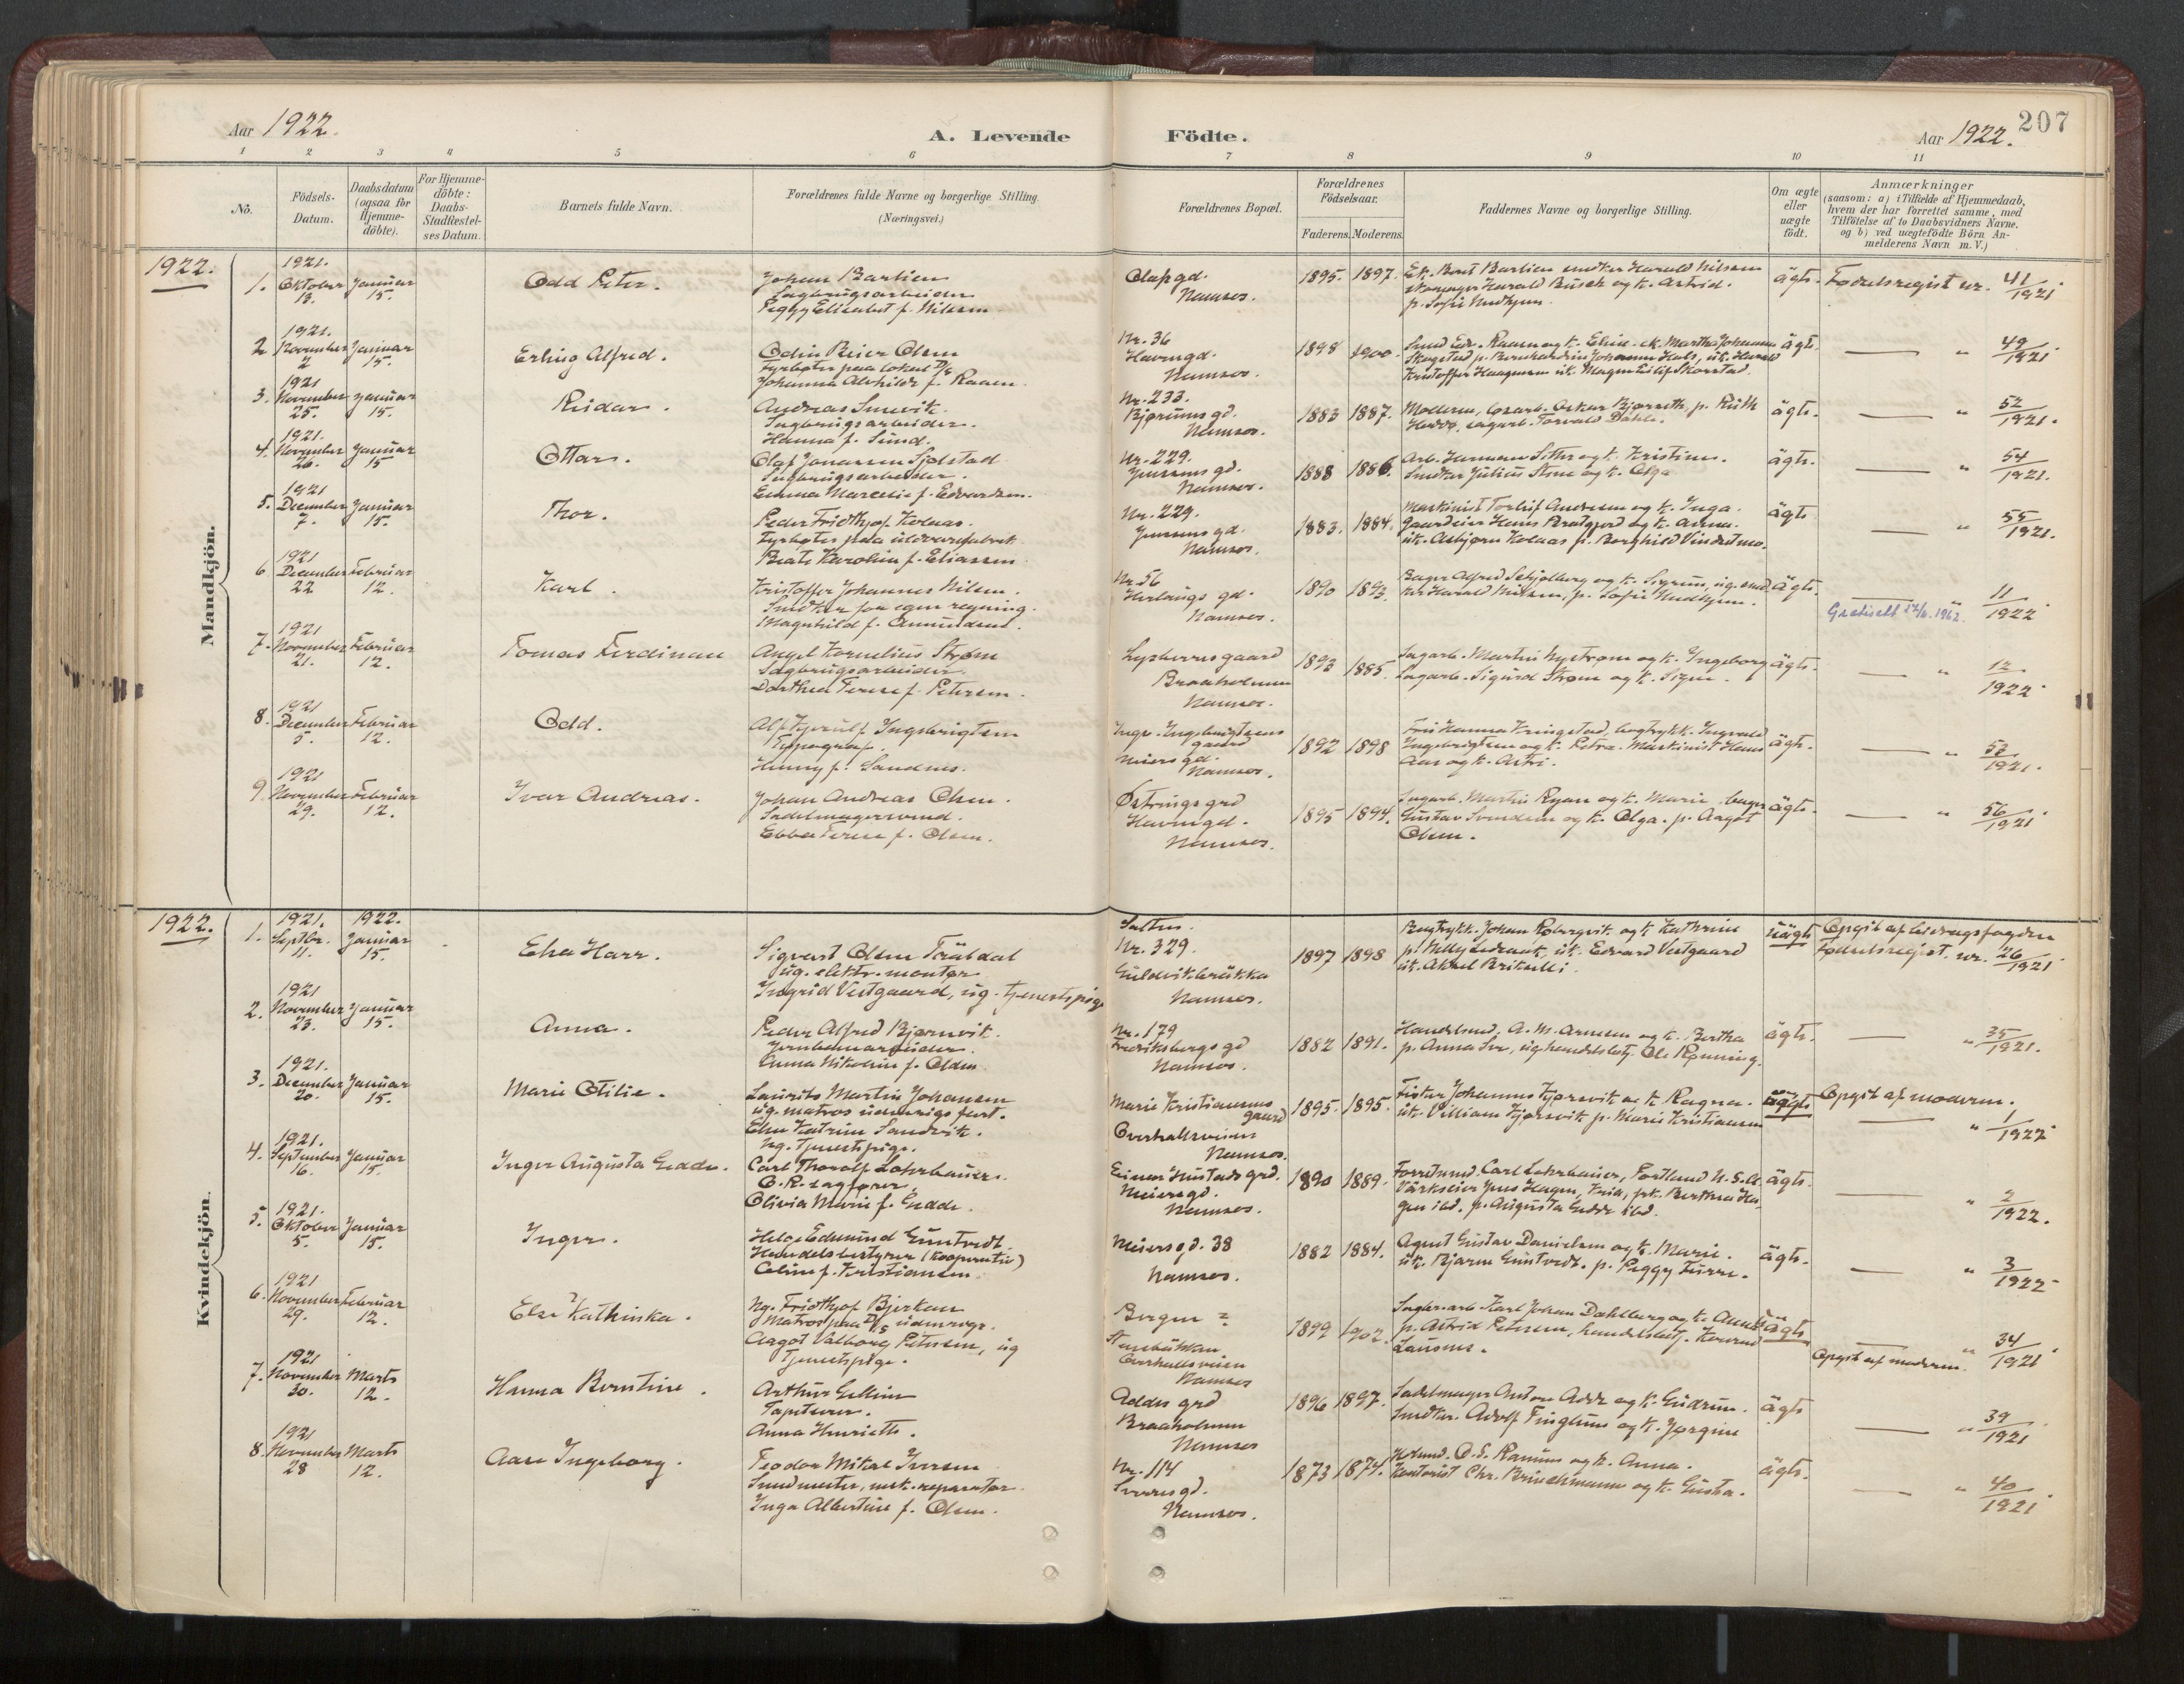 Aar 1922.
A. Levende Födte.
Aar 1922.
207
1 2 3 4 5 6 7 8 9 10 11
No.
Födsels-Datum.
Daabsdatum (ogsaa for Hjemme-döbte).
For Hjemme-döbte: Daabs-Stadfæstel-ses Datum.
Barnets fulde Navn.
Forældrenes fulde Navne og borgerlige Stilling. (Næringsvei.)
Forældrenes Bopæl.
Forældrenes Födselsaar.
Faderens. Moderens.
Faddernes Navne og borgerlige Stilling.
Om ægte eller uægte födt.
Anmærkninger (saasom: a) i Tilfælde af Hjemmedaab, hvem der har forrettet samme, med Tilföielse af to Daabsvidners Navne. og b) ved uægtefödte Börn An-melderens Navn m.V.)
Mandkjön.
1922.
1. 1921. Oktober 12. Januar 15. Odd Peter.
Johan Barlien
Sagbrugsarbeider
Peggy Elisabet f. Nilssen
Olafs gd.
Namsos.
1895. 1897.
Harald Nilssen
Harald Busch og k. Astrid.
p. Sofie
ägte. Fødselsregist. nr. 41/1921
2. 1921. November 2 Januar 15. Erling Alfred.
Odin Reier Olsen
Fyrbøter paa lokal D/S
Johanna Alvhilde f. Raaen.
Nr. 36
Havnegd.
Namsos.
1898 1900.
Raaen og k. Eline. Martha Johansen
Skogstad p.
Kristoffer Haagensen
ägte. — " 49/1921
3. 1921 November 25. Januar 15. Reidar.
Andreas Smevik.
Sagbrugsarbeider.
Hanna f. Lund.
Nr. 233.
Bjørumsgd.
Namsos.
1883 1887.
Moderen, Oskar Bjørseth, p. Ruth
sagarb. Torvald Dahle.
ägte. — " 52/1921.
4. 1921 November 26. Januar 15 Ottar.
Olaf Jonassen Sjølstad
Sagbrugsarbeider.
Emma Marcelie f. Edvardsen.
Nr. 229.
Jenssens gd.
Namsos.
1888 1886.
Arb. Hermann og k. Kristine.
Snedker Julius og k. Olga
ägte. — " 54/1921.
5. 1921 December 7. Januar 15. Thor.
Peder Fridthjof Kolaas.
Fyrbøter paa uldvarefabrik
Beate Karoline f. Eliassen
Nr. 229.
Jenssens gd.
Namsos.
1883. 1884.
Maskinist Torleif Andresen og k. Inga.
Gaardeier Hans og k. Anna.
uk. Asbjørn Kolaas p. Borghild Vindetmo.
ägte — " 55/1921.
6. 1921 December 22 Februar 12. Karl.
Kristoffer Johannes Nilsen.
Snedker for egen regning.
Magnhild f. Amundsen.
Nr. 56
Herlaugs gd.
Namsos.
1890 1893.
Bager Alfred og k. Sigrun, ug. sned-
ker Harald Nilssen, p. Sofie
ägte. — " 11/1922
Gratisatt 1962.
7. 1921 November 21. Februar 12. Tomas Ferdinan
Angel Kornelius Strøm
Sagbrugsarbeider.
Dorthea Terese f. Petersen.
Braaholmen
Namsos.
1893 1885.
Sagarb. Martin Nystrøm og k. Ingeborg
Sagarb. Sigurd Strøm og k. Signe.
ägte. — " 12/1922
8. 1921 December 5. Februar 12. Odd.
Alf Kjerulf Ingebrigtsen
Typograf.
Henny f. Sandnes.
Ingv. Ingebrigtsens gaard
Meiersgd.
Namsos.
1892 1898
Fru Hanna Kringstad, bogtrykk. Ingvald
Ingebrigtsen og k. Petra. Maskinist Hans
Aas og k. Astri.
ägte. — " 53/1921.
9. 1921 November 29. Februar 12. Ivar Andreas.
Johan Andreas Olsen.
Sadelmagersvend.
Ebba Terese f. Olsen.
Østrings grd
Havnegd.
Namsos.
1895 1894.
Sagarb. Martin Ryan og k. Marie. bager
Gustav Svendsen og k. Olga. p. Aagot
Olsen.
ägte. — " 56/1921
Kvindekjön.
1922.
1. 1921. Septbr. 11. 1922. Januar 15. Elsa Harr.
Sigvart Olsen
ug. elektr. montør
Ingrid Vestgaard, ug. tjenestpige
Nr. 329.
Namsos.
1897 1898
Bogtrykk. Johan og k. Kathrine
p. Nelly uk. Edvard Vestgaard
uk. Aksel
uägte Opgit af bidragsfogden
Fødselsregist. nr. 26/1921
2. 1921 November 23. Januar 15. Anna.
Peder Alfred Bjørnvik.
Jernbanearbeider.
Anna Nikoline f. Olsen
Nr. 179
Fredriksbergs gd
Namsos.
1882 1891.
Handelsmd. A. M. Arnesen og k. Bertha
p. Anna Ole Rønning.
ägte. — " 35/1921.
3. 1921. December 20. Januar 15. Marie Otilie.
Laurits Martin Johansen
ug. matros udenrigs fart.
Else Katrine Sandvik.
ug. tjenestpige.
Marie Kristiansens gaard
Overhallsveien
Namsos.
1895. 1895.
Fisker Johannes og k. Ragna.
uk. William p. Marie Kristiansen
uägte Opgit af moderen.
— " 1/1922
4. 1921. September 16. Januar 15. Inger Augusta Gedde.
Carl Thoralf Lohrbauer.
O.R. sagfører
Olivia Marie f. Gedde.
Einar Hustads grd.
Meiersgd.
Namsos.
1890 1889.
Carl Lohrbauer, Portland U.S.A.
Værkseier Jens Hagen, Berthea Ha-
gen ibd. p. Augusta Gedde ibd.
ägte. — " 2/1922.
5. 1921. Oktober 5. Januar 15. Inger.
Helge Edmund Guntvedt.
Handelsbestyrer (kooperativ)
Celine f. Kristiansen.
Meiersgd. 38
Namsos.
1882 1884.
Agent Gustav Danielsen og k. Marie.
uk. Bjarne Guntvedt. p. Peggy
ägte. — " 3/1922
6. 1921 November 29. Februar 12. Else Kathinka.
Ug. Fridthjof Bjerkan
Matros paa D/S udenrigs.
Aagot Valborg Petersen, ug
tjenestpige.
Bergen ?
Overhallsveien
Namsos
1899 1902.
Karl Johan Dahlberg og k.
p. Astrid Petersen, handelsbetj.
uägte — " 34/1921
Opgit af moderen.
7. 1921 November 30. Marts 12. Hanna Berntine.
Arthur
Tapetserer.
Anna Henriette.
Addes grd
Braaholmen
Namsos
1896 1897.
Sadelmager Anton Adde og k. Gudrun.
Snedker. Adolf og k. Jørgine
ägte — " 39/1921
8. 1921 November 28 Marts 12. Aase Ingeborg.
Teodor Mikal Iversen
Smedmester, mek. reparatør
Inga Albertine f. Olsen.
Nr. 114
Sverresgd.
Namsos.
1873 1874.
og k. Anna.
Kontorist Chr. og k. Gusta.
ägte. — " 40/1921